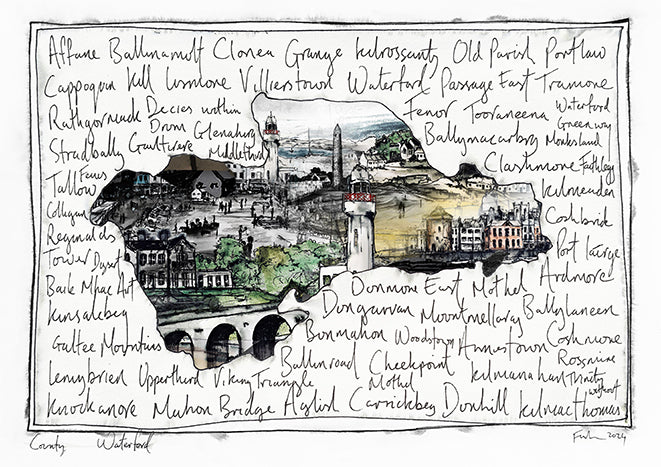 Affane Ballinamult Clonea Grange Kilrossanty Old Parish Portlaw
Cappoquin Kill Lismore Villierstown Waterford Passage East Tramore
Rathgormuck Decies within Fenor Tooraneena Waterford Greenway
Drom Glenahiry Ballymacarbry Monksland
Stradbally Gaultiere Middlethird Clashmore Faithlegg
Tallow Fews Kilmeaden
Coshbride
Reginalds Tower Dysert Port Lairge
Baile Mhac Airt Dunmore East Mothel Ardmore
Kinsalebeg Dungarvan Ballylaneen
Galtee Mountains Bunmahon Woodstown Annestown Coshmore
Ballinroad Cheekpoint Rossmire
Lemybrien Upperthird Viking Triangle Mothel Kilmanahan Trinity without
Knockanore Mahon Bridge Aglish Carrickbeg Dunhill Kilmacthomas
County Waterford 2024